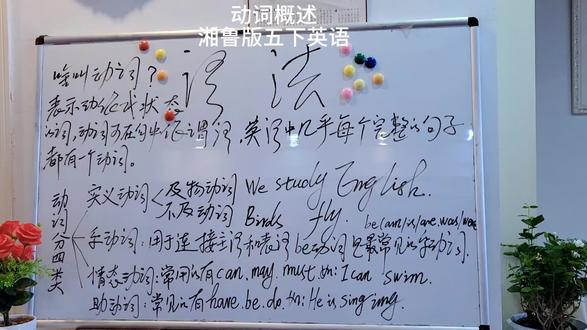 动词概述
湘鲁版五下英语
语法
啥叫动词?
表示动作或状态
的词,动词可在句中作谓语,英语中几乎每个完整的句子
都有一个动词。
动词分四类
实义动词 及物动词 We study English.
不及物动词 Birds fly.
be(am/is/are.was/were
系动词:用于连接主语和表语be动词是最常见的系动词.
情态动词:常用的有can.may.must.如:I can swim.
助动词:常见的有have.be.do.如:He is singing.